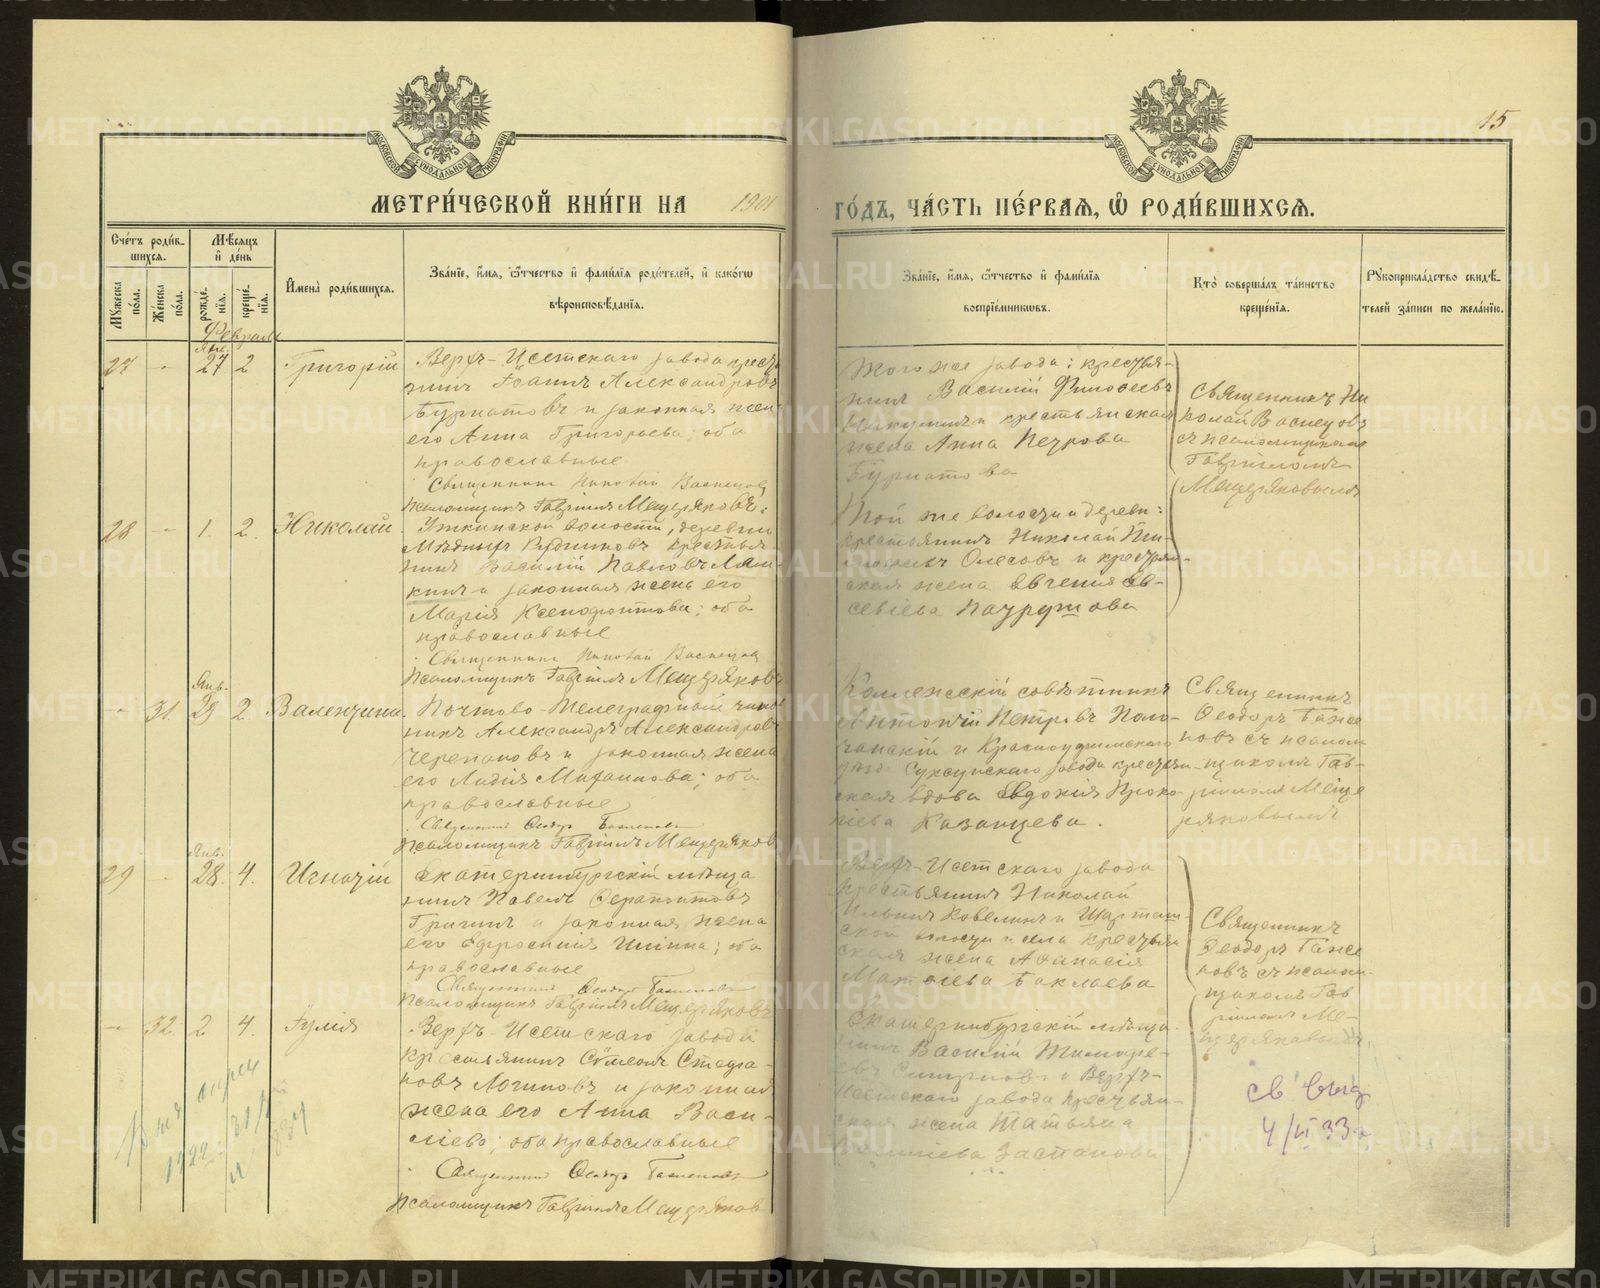 15
МЕТРИ́ЧЕСКОЙ КНИ́ГИ НА 1901 ГО́ДЪ, ЧА́СТЬ ПЕ́РВАЯ, Ѡ РОДИ́ВШИХСЯ.
Сче́тъ роди́в-
шихся.
Мѣ́сяцъ
и҆ де́нь
Му́жеска
по́ла.
Же́нска
по́ла.
рожде́-
нїя.
креще́-
нїя.
И҆мена̀ роди́вшихся.
Зва́нїе, и҆́мя, ѻ҆́тчество и҆ фами́лїя роди́телей, и҆ како́гѡ
вѣроисповѣ́данїя.
Зва́нїе, и҆́мя, ѻ҆́тчество и҆ фами́лїя
воспрїе́мниковъ.
Кто̀ соверша́лъ та́инство
креще́нїя.
Рꙋкоприкла́дство свидѣ́-
телей за́писи по жела́нїю.
Февраль
27 - Янв. 27 2 Григорій
Верхъ-Исетскаго завода кресть
нинъ Іоаннъ Александровъ
Бурматовъ и законная жена
его Анна Григорьева; оба
православные.
Священникъ Николай Васнецовъ
Псаломщикъ Гавріилъ Мещеряковъ.
Того же завода: крестья-
нинъ Василій
и крестьянская
жена Анна Петрова
Бурматова
Священникъ Ни
колай Васнецовъ
съ псаломщикомъ
Гавріиломъ
Мещеряковымъ
28 - 1. 2. Николай.
Уткинской волости, деревни
Мѣдныхъ Рудниковъ крестья
нинъ Василій Павловъ
и законная жена его
Марія Ксенофонтова; оба
православные
Священникъ Николай Васнецовъ
Псаломщикъ Гавріилъ Мещеряковъ
Той же волости и деревни:
крестьянинъ Николай
и крестьян-
ская жена Евгенія Ев-
севіева
- 31. Янв. 29 2. Валентина.
Почтово-телеграфный чинов
никъ Александръ Александровъ
Черепановъ и законная жена
его Лидія Михаилова; оба
православные
Священникъ Ѳеодоръ Баженовъ
Псаломщикъ Гавріилъ Мещеряковъ
Коллежскій совѣтникъ
Антоній Петровъ Поло-
чанскій и Красноуфимскаго
уѣзд. Суксунскаго завода крестьян-
ская вдова Евдокія Проко-
піева Казанцева.
Священникъ
Ѳеодоръ Баже
новъ съ псалом
щикомъ Гав-
ріиломъ Меще
ряковымъ
29 - Янв. 28. 4. Игнатій
Екатеринбургскій мѣща
нинъ Павелъ
и законная жена
его Ефросинія; оба
православные
Священникъ Ѳеодоръ Баженовъ
Псаломщикъ Гавріилъ Мещеряковъ
Верхъ-Исетскаго завода
крестьянинъ Николай
Ильинъ Ковелинъ и Шарташ-
ской волости и села крестьян
ская жена Аѳанасія
Матѳіева Баклаева
Священникъ
Ѳеодоръ Баже
новъ съ псалом-
щикомъ Гав
ріиломъ Ме-
щеряковымъ.
- 32. 2 4. Іулія
Верхъ-Исетскаго завода
крестьянинъ Сѵмеонъ Стефа-
новъ Логиновъ и законная
жена его Анна Васи-
ліева; оба православные
Священникъ Ѳеодоръ Баженовъ
Псаломщикъ Гавріилъ Мещеряковъ
Екатеринбургскій мѣща-
нинъ Василій Тимоѳе-
евъ Смирновъ и Верхъ-
Исетскаго завода крестьян-
ская жена Татьяна
1922
св выд
4/VI 33г
METRIKI.GASO-URAL.RU